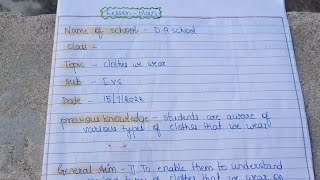 Lesson-plan
Name of school - D.A school
Class -
Topic - clothes we wear
Sub - E.V.S
Date - 15/7/2022
previous knowledge - students are aware of
various types of clothes that we wear
General Aim - 1) To enable them to understand
types of clothes that we wear on